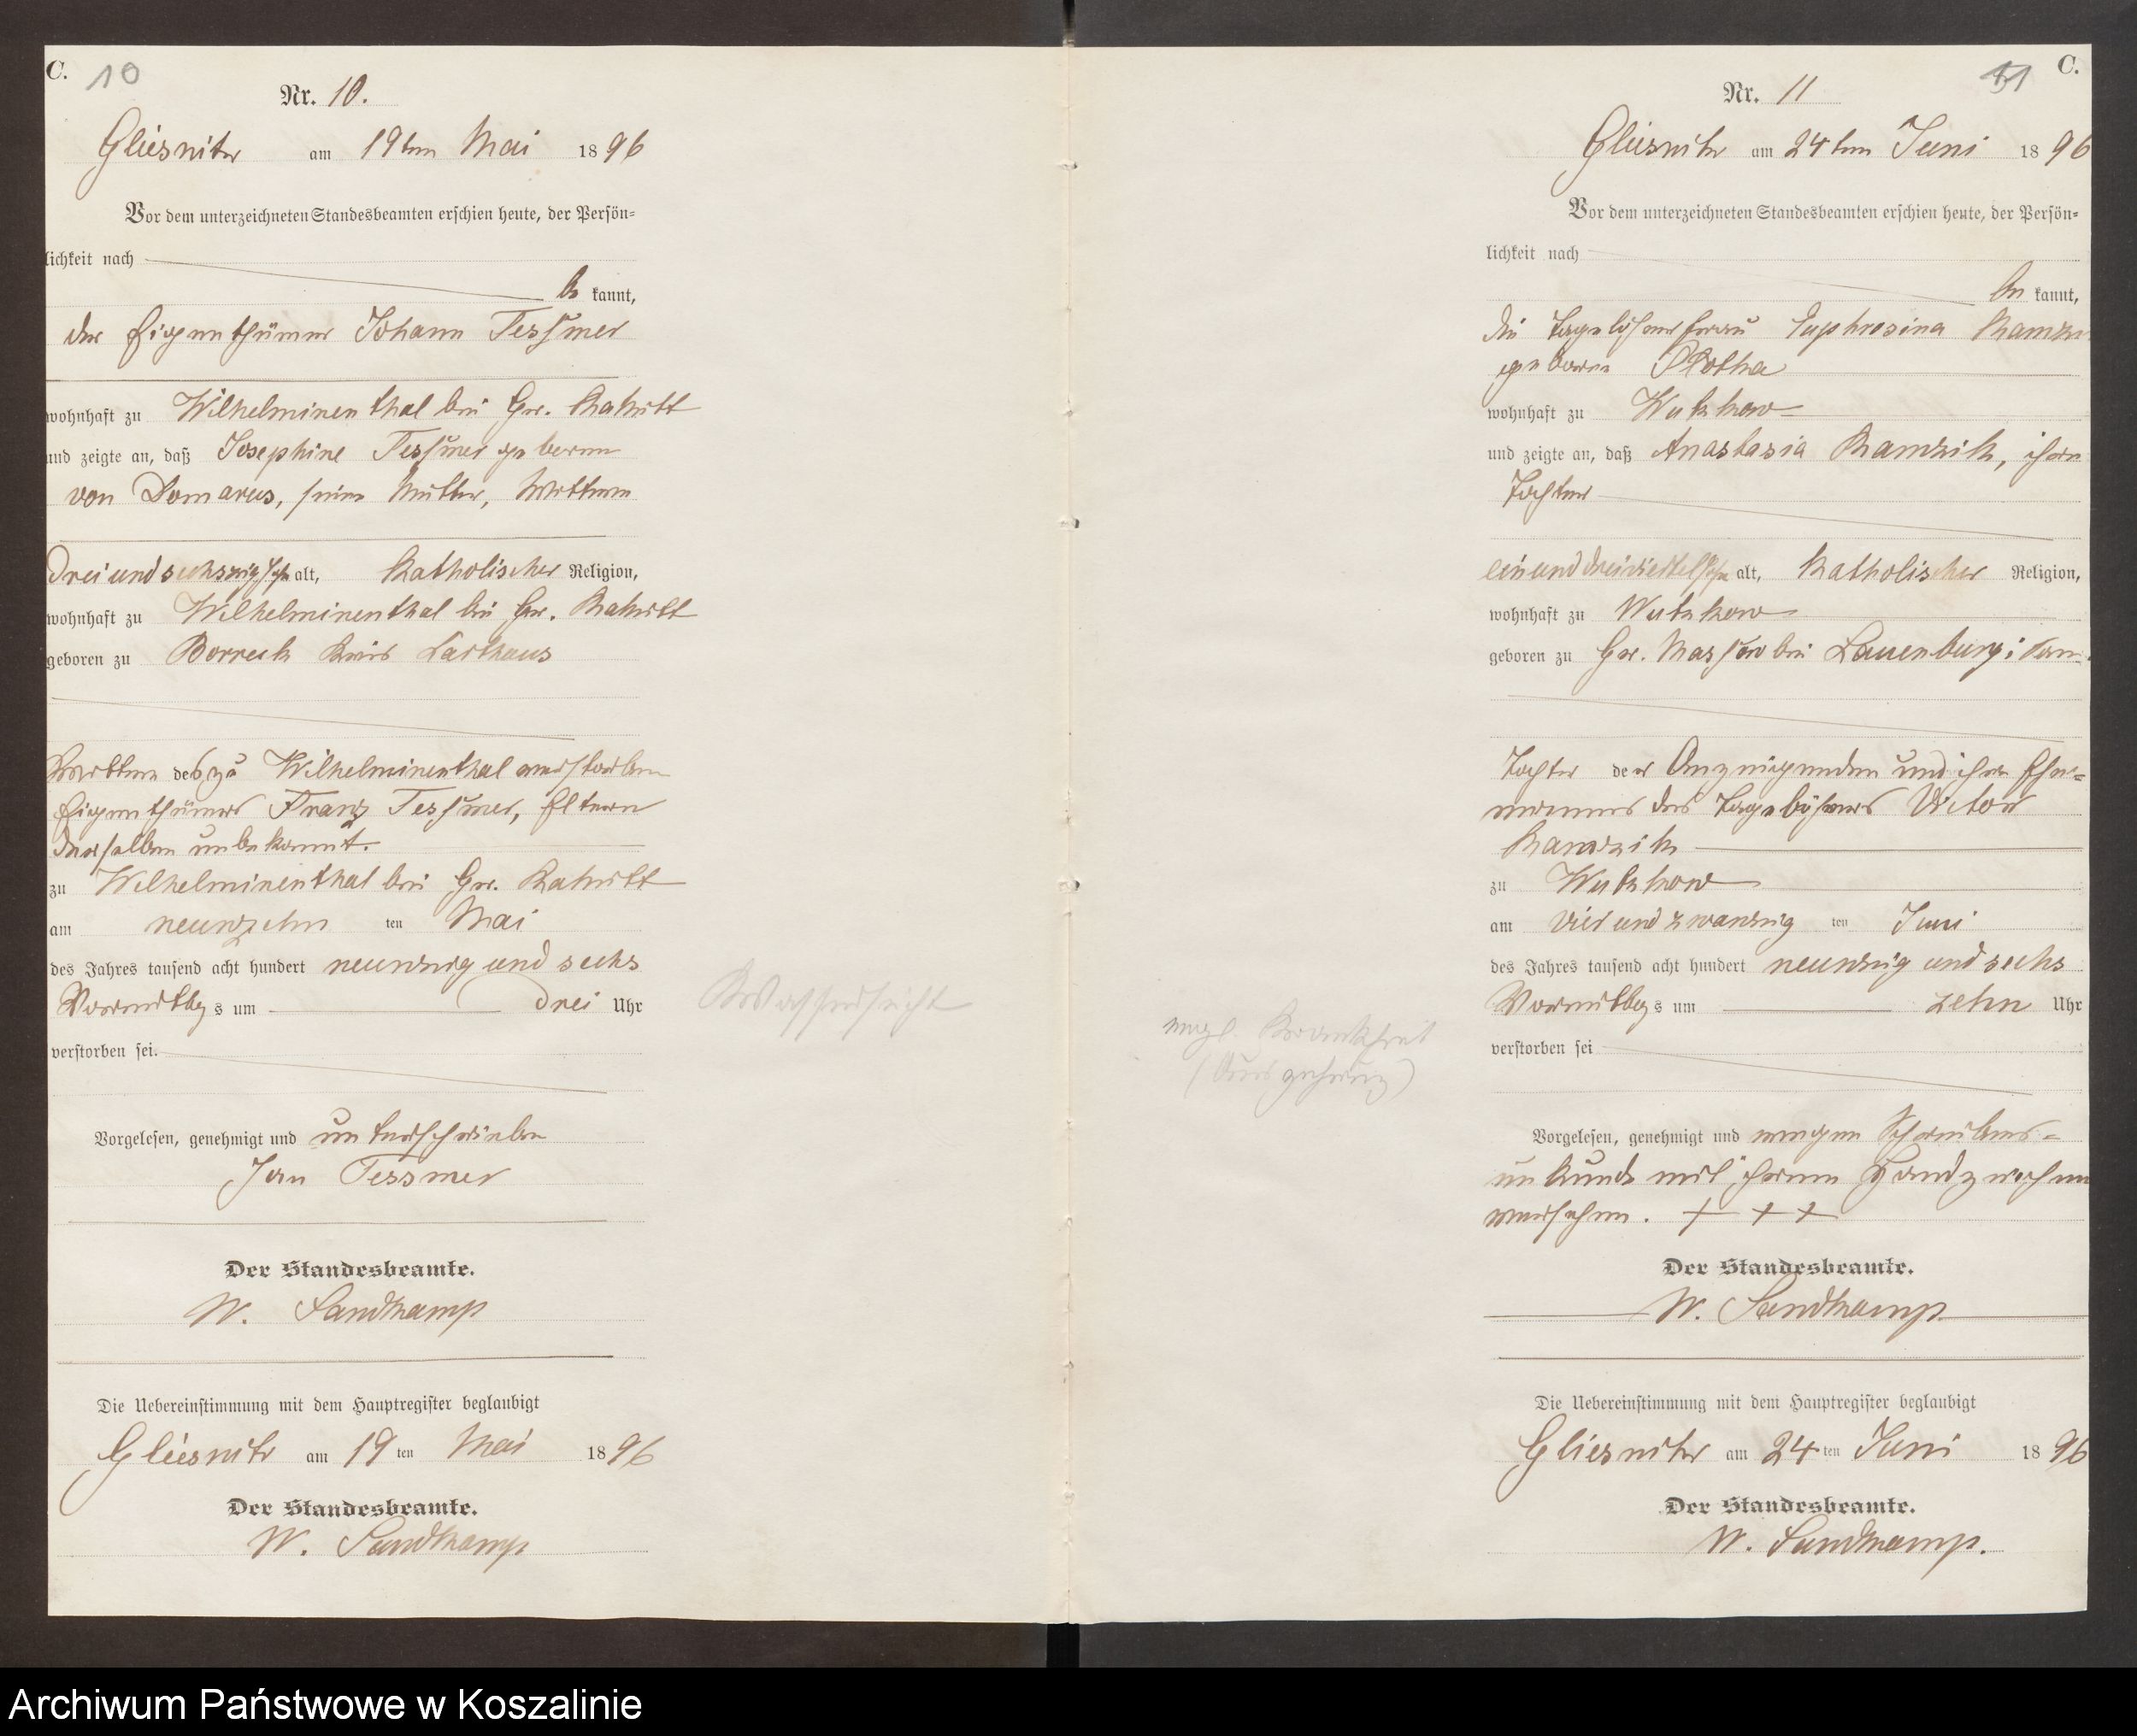 C. 10
Nr. 10.
Gliesnitz am 19ten Mai 1896
Vor dem unterzeichneten Standesbeamten erschien heute, der Persön-
lichkeit nach
be kannt,
der Eigenthümer Johann Tessmer
wohnhaft zu Wilhelminenthal bei Gr. Rakitt
und zeigte an, daß Josephine Tessmer geborene
von Domarus, seine Mutter, Wittwe
dreiundsechszig Jahr alt, katholischer Religion,
wohnhaft zu Wilhelminenthal bei Gr. Rakitt
geboren zu Borreck Kreis Carthaus
Wittwe des zu Wilhelminenthal verstorbenen
Eigenthümers Franz Tessmer, Eltern
derselben unbekannt.
zu Wilhelminenthal bei Gr. Rakitt
am neunzehn ten Mai
des Jahres tausend acht hundert neunzig und sechs
Vormittags um drei Uhr
verstorben sei.
Wassersucht
Vorgelesen, genehmigt und unterschrieben
Jan Tessmer
Der Standesbeamte.
W. Sandkamp
Die Uebereinstimmung mit dem Hauptregister beglaubigt
Gliesnitz am 19 ten Mai 1896
Der Standesbeamte.
W. Sandkamp
11 C.
Nr. 11
Gliesnitz am 24ten Juni 1896
Vor dem unterzeichneten Standesbeamten erschien heute, der Persön-
lichkeit nach
be kannt,
die Tagelöhnerfrau Euphrosina
geborene Plotka
wohnhaft zu Wutzkow
und zeigte an, daß Anastasia Kamzik, ihre
Tochter
einunddreiviertel Jahr alt, katholischer Religion,
wohnhaft zu Wutzkow
geboren zu Gr. Massow bei Lauenburg i Pom.
Tochter der Anzeigenden und ihres Ehe=
mannes des Tagelöhners Victor
Kamzik
zu Wutzkow
am vier und zwanzig ten Juni
des Jahres tausend acht hundert neunzig und sechs
Vormittags um zehn Uhr
verstorben sei
engl. Krankheit
(Auszehrung)
Vorgelesen, genehmigt und wegen Schreibens=
unkunde mit ihrem Handzeichen
versehen. + + +
Der Standesbeamte.
W. Sandkamp
Die Uebereinstimmung mit dem Hauptregister beglaubigt
Gliesnitz am 24 ten Juni 1896
Der Standesbeamte.
W. Sandkamp.
Archiwum Państwowe w Koszalinie